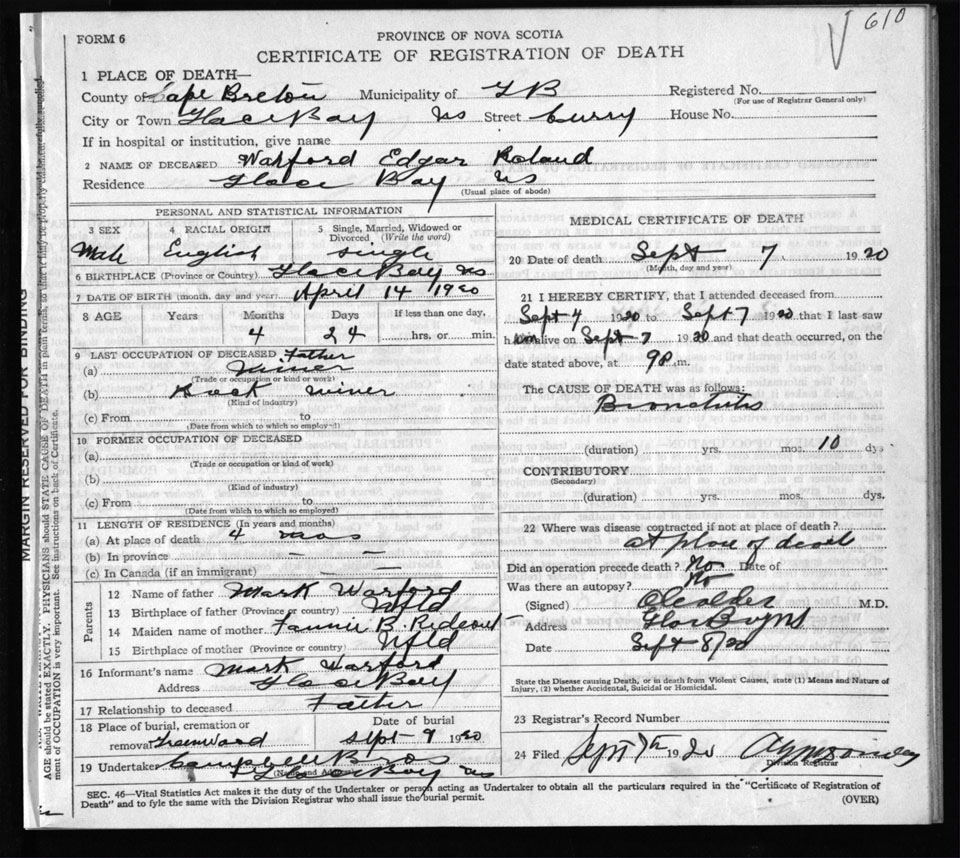 610
FORM 6
PROVINCE OF NOVA SCOTIA
CERTIFICATE OF REGISTRATION OF DEATH
1 PLACE OF DEATH—
County of Cape Breton Municipality of G B Registered No.
(For use of Registrar General only)
City or Town Glace Bay NS Street Curry House No.
If in hospital or institution, give name
2 NAME OF DECEASED Warford Edgar Roland
Residence Glace Bay NS
(Usual place of abode)
PERSONAL AND STATISTICAL INFORMATION
3 SEX 4 RACIAL ORIGIN 5 Single, Married, Widowed or Divorced (Write the word)
Male English Single
6 BIRTHPLACE (Province or Country) Glace Bay NS
7 DATE OF BIRTH (month, day and year) April 14 1920
8 AGE Years Months Days If less than one day,
4 24 hrs. or min.
9 LAST OCCUPATION OF DECEASED Father
(a) Miner
(Trade or occupation or kind of work)
(b) miner
(Kind of industry)
(c) From to
(Date from which to which so employed)
10 FORMER OCCUPATION OF DECEASED
(a)
(Trade or occupation or kind of work)
(b)
(Kind of industry)
(c) From to
(Date from which to which so employed)
11 LENGTH OF RESIDENCE (In years and months)
(a) At place of death 4 mos
(b) In province — —
(c) In Canada (if an immigrant) — —
Parents
12 Name of father Mark Warford
13 Birthplace of father (Province or country) Nfld
14 Maiden name of mother Fannie B. Rideout
15 Birthplace of mother (Province or country) Nfld
16 Informant's name Mark Warford
Address Glace Bay
17 Relationship to deceased Father
18 Place of burial, cremation or Date of burial
removal Greenwood Sept 9 1920
19 Undertaker Campbell Bros
(Name and Address) Glace Bay NS
MEDICAL CERTIFICATE OF DEATH
20 Date of death Sept 7 1920
(Month, day and year)
21 I HEREBY CERTIFY, that I attended deceased from
Sept 4 1920 to Sept 7 1920 that I last saw
him alive on Sept 7 1920 and that death occurred, on the
date stated above, at 9 P. m.
The CAUSE OF DEATH was as follows:
Bronchitis
(duration) yrs. mos. 10 dys
CONTRIBUTORY
(Secondary)
(duration) yrs. mos. dys.
22 Where was disease contracted if not at place of death?
At place of death
Did an operation precede death? No Date of
Was there an autopsy? No
(Signed) M.D.
Address Glace Bay NS
Date Sept 8/20
State the Disease causing Death, or in death from Violent Causes, state (1) Means and Nature of
Injury, (2) whether Accidental, Suicidal or Homicidal.
23 Registrar's Record Number
24 Filed Sept 7th 1920
Division Registrar
SEC. 46—Vital Statistics Act makes it the duty of the Undertaker or person acting as Undertaker to obtain all the particulars required in the "Certificate of Registration of
Death" and to fyle the same with the Division Registrar who shall issue the burial permit. (OVER)
MARGIN RESERVED FOR BINDING
AGE should be stated EXACTLY. PHYSICIANS should STATE CAUSE OF DEATH in plain terms, so that it may be properly classified.
ment of OCCUPATION is very important. See instructions on back of Certificate.